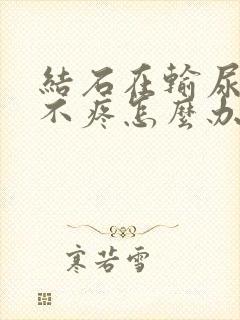 結石在輸尿
不疼怎麼办
寒若雪